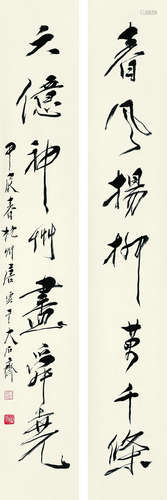 春风楊柳萬千條
六億神州盡舜堯
甲辰春杭州唐雲于大石齋